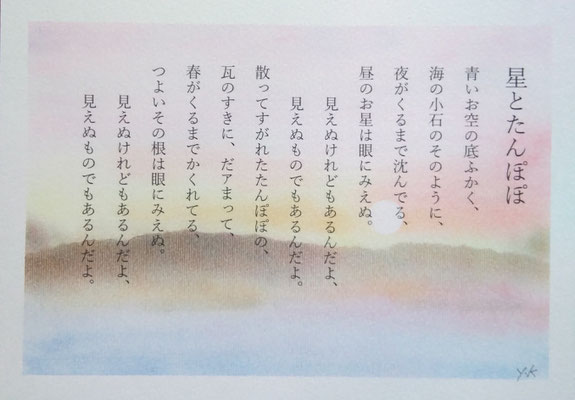 星とたんぽぽ
青いお空の底ふかく、
海の小石のそのように、
夜がくるまで沈んでる、
昼のお星は眼にみえぬ。
見えぬけれどもあるんだよ、
見えぬものでもあるんだよ。
散ってすがれたたんぽぽの、
瓦のすきに、だアまって、
春がくるまでかくれてる、
つよいその根は眼にみえぬ。
見えぬけれどもあるんだよ、
見えぬものでもあるんだよ。
Y.K